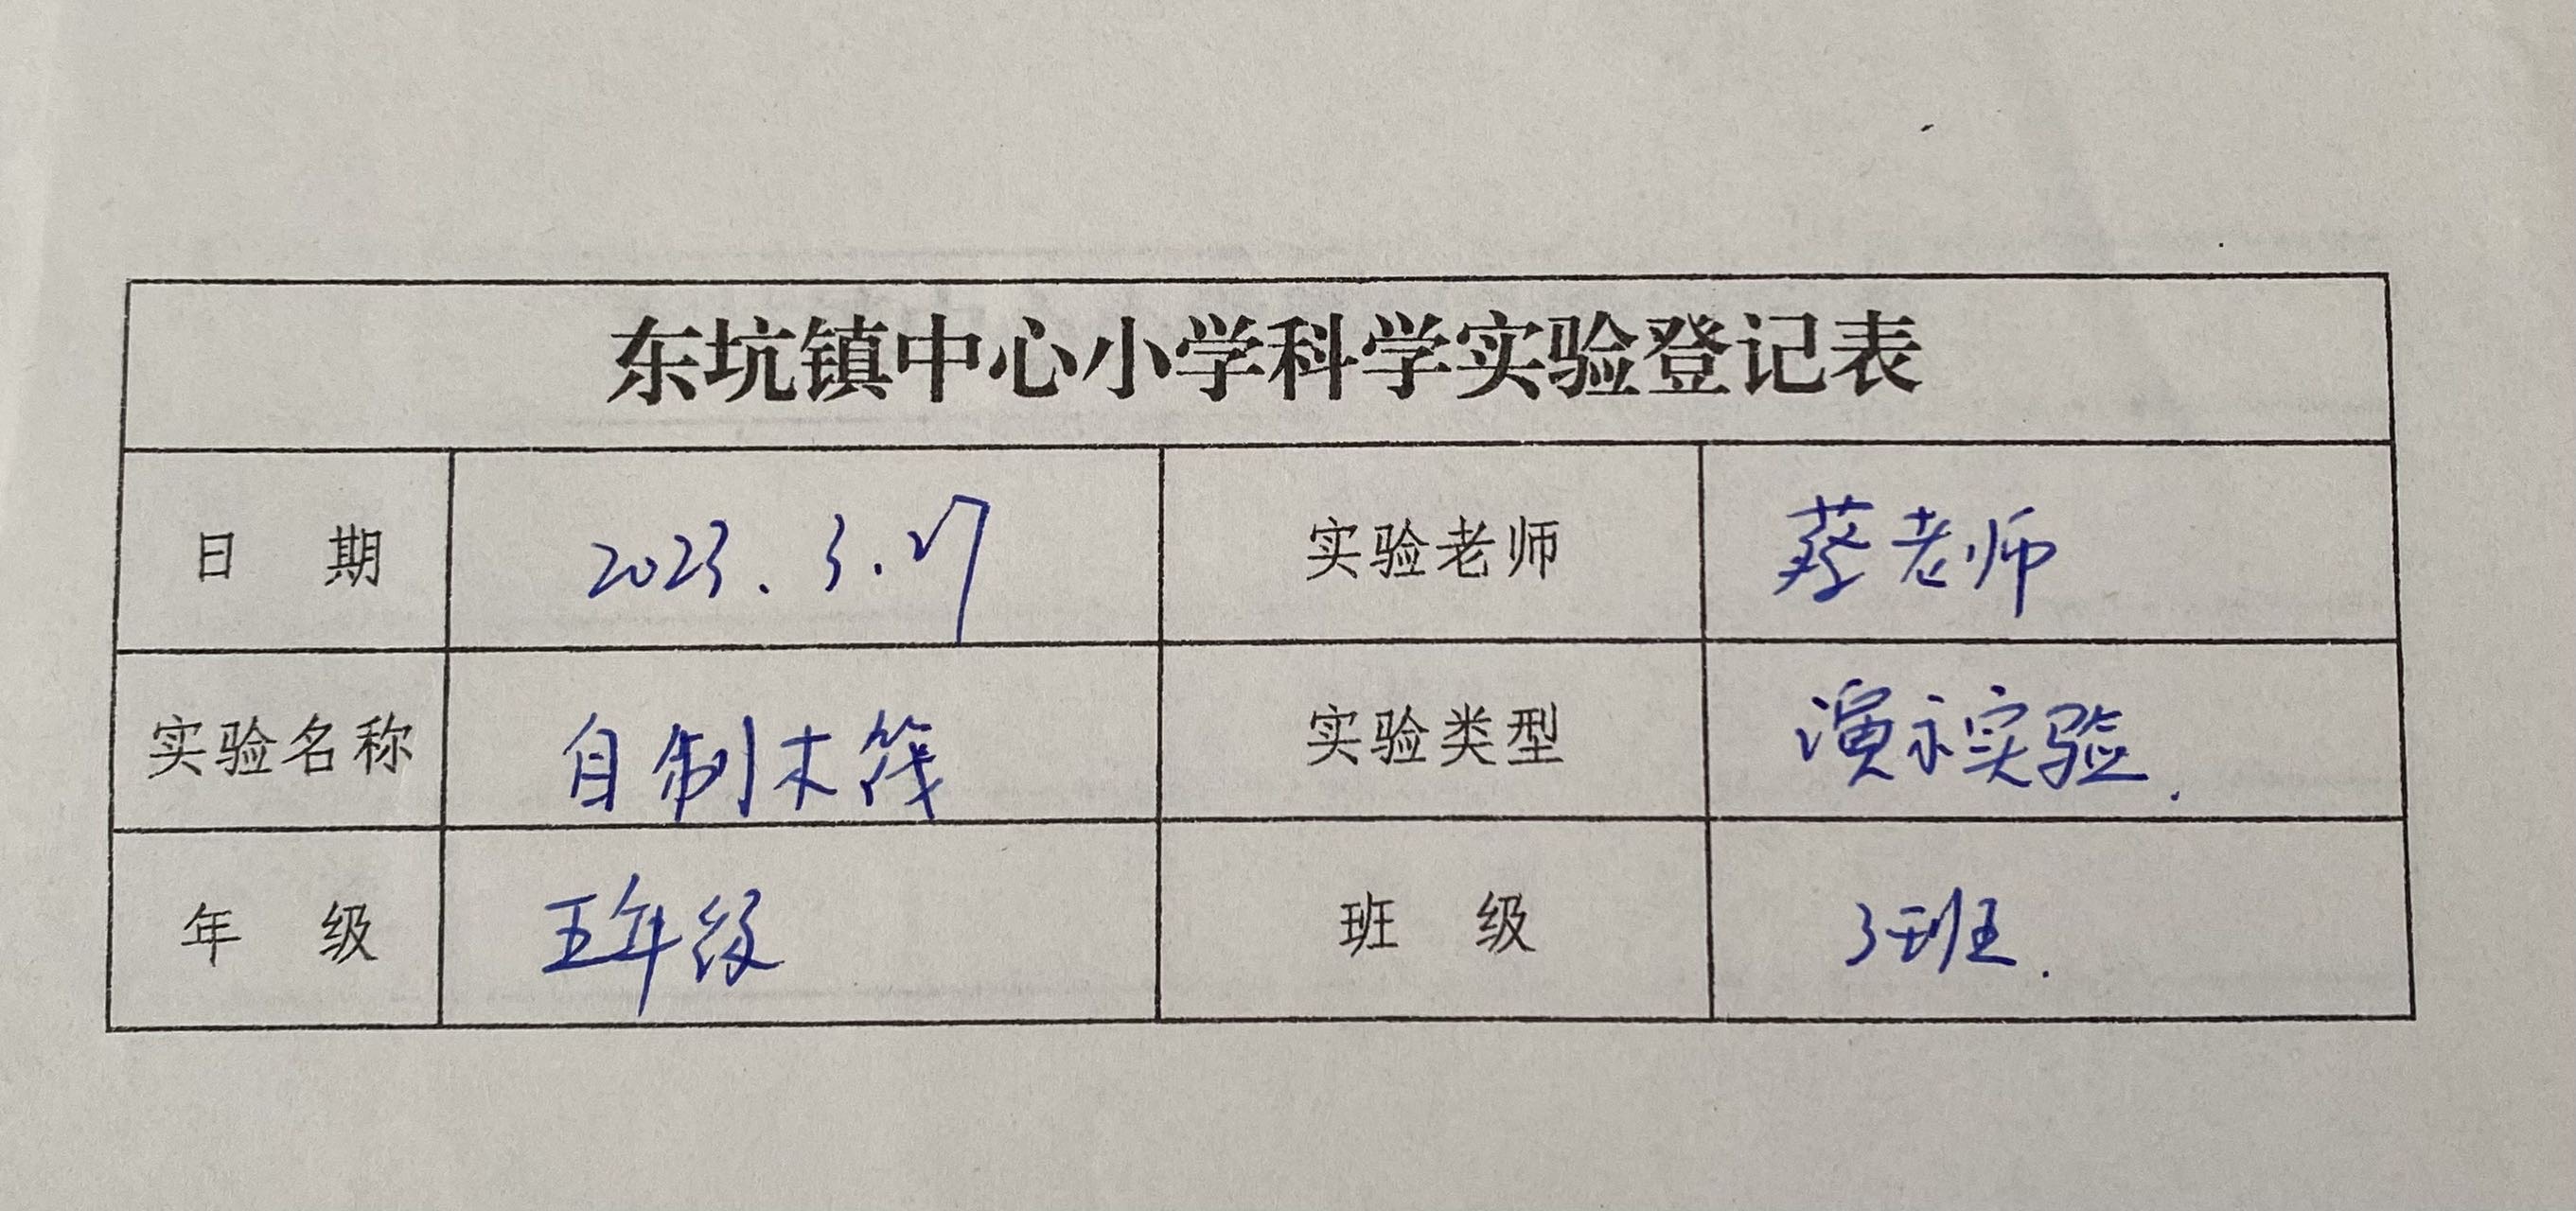 东坑镇中心小学科学实验登记表
日 期 2023.3.27 实验老师 蔡老师
实验名称 自制木筏 实验类型 演示实验.
年 级 五年级 班 级 3班.